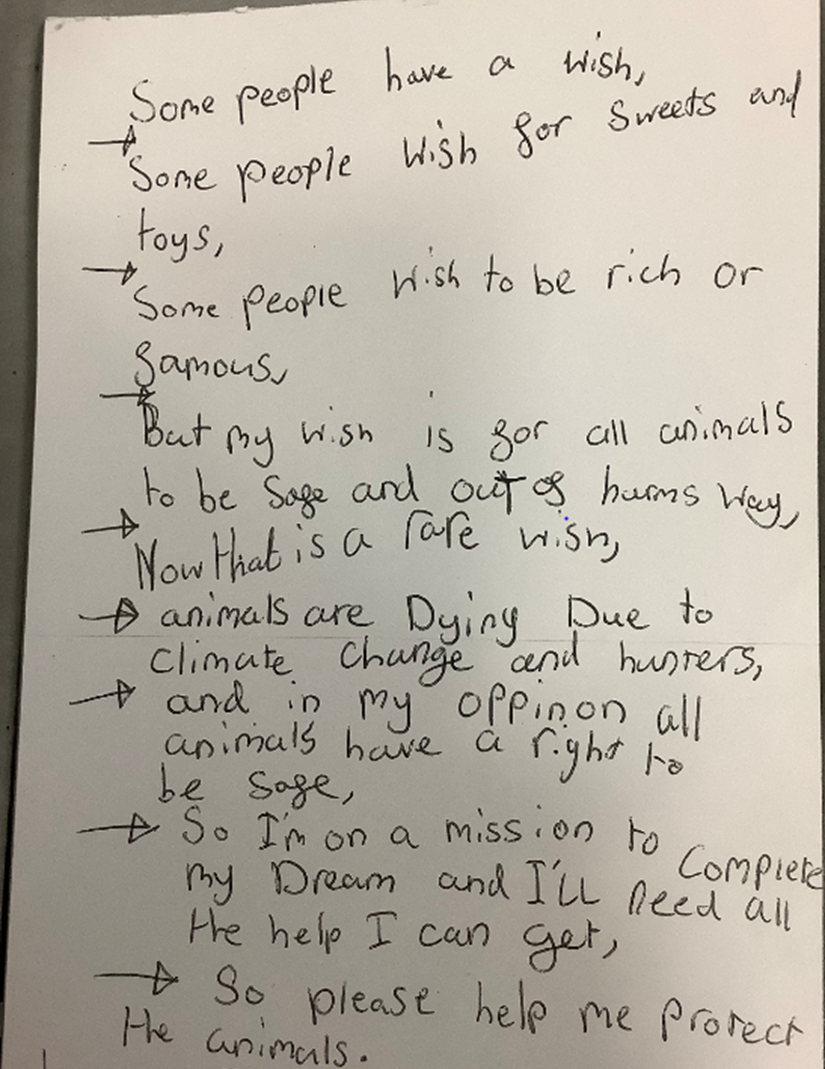 Some people have a wish,
→ Some people wish for sweets and
toys,
→ Some people wish to be rich or
famous,
→ But my wish is for all animals
to be safe and out of harms way,
→ Now that is a rare wish,
→ animals are Dying Due to
Climate Change and hunters,
→ and in my oppinon all
animals have a right to
be safe,
→ So I'm on a mission to Complete
my Dream and I'LL need all
the help I can get,
→ So please help me protect
the animals.